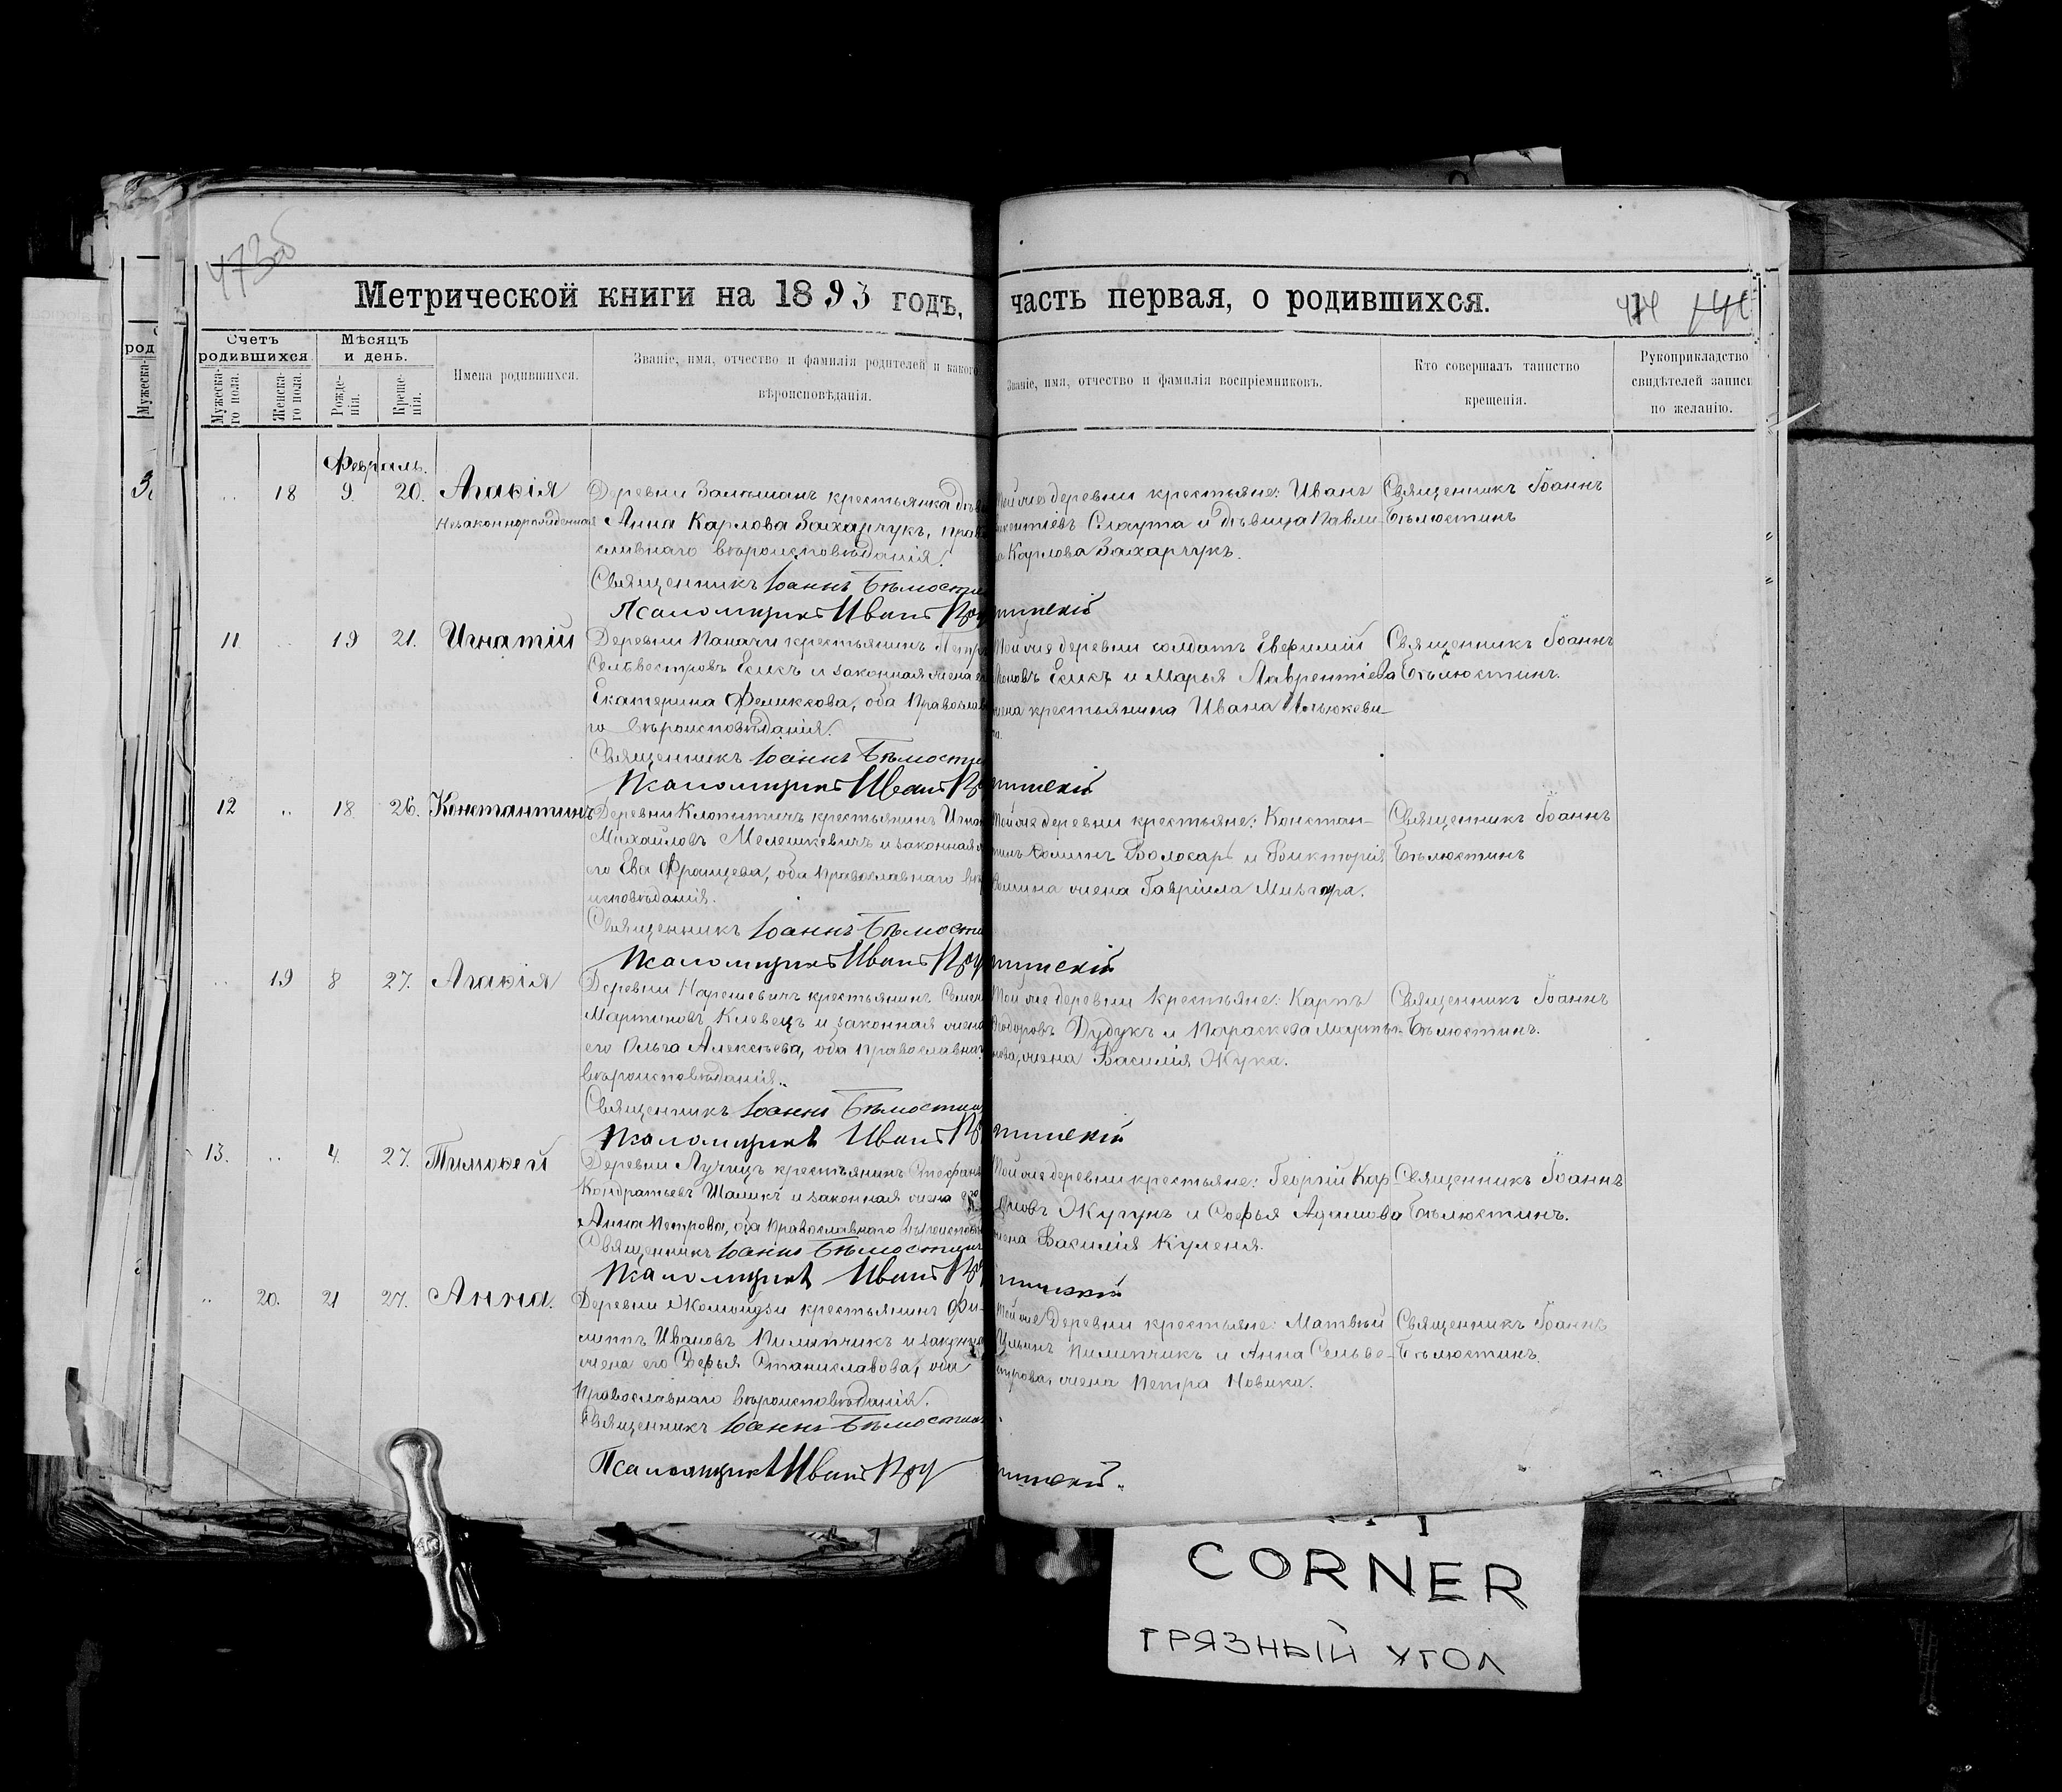 473об
Метрической книги на 1893 годъ, часть первая, о родившихся.
474
Счетъ родившихся.
Мѣсяцъ и день.
Мужеска-го пола.
Женска-го пола.
Рожде-нія.
Креще-нія.
Имена родившихся.
Званіе, имя, отчество и фамилія родителей и какого
вѣроисповѣданія.
Званіе, имя, отчество и фамилія воспріемниковъ.
Кто совершалъ таинство
крещенія.
Рукоприкладство
свидѣтелей записи
по желанію.
Февраль.
18 9. 20. Агаѳія
Незаконнорожденная
Деревни крестьянка
Анна Карлова Захарчукъ, прав
славнаго вѣроисповѣданія.
Священникъ Іоаннъ Бѣлюсти
Псаломщикъ Иванъ
Той же деревни крестьяне: Иванъ
Слаута и дѣвица Павли
Карлова Захарчукъ.
Священникъ Іоаннъ
Бѣлюстинъ
11 19 21. Игнатій
Деревни Паначи крестьянинъ Петръ
Сельвестровъ Есисъ и законная жена
Екатерина Феликсова, оба Православ
го вѣроисповѣданія.
Священникъ Іоаннъ Бѣлюсти
Псаломщикъ Иванъ
Той же деревни солдатъ Евфимій
Есисъ и Марья Лаврентіева
жена крестьянина Ивана
Священникъ Іоаннъ
Бѣлюстинъ.
12 18 26. Константинъ
Деревни крестьянинъ
Михайловъ Мелешкевичъ и законная
его Ева Францева, оба Православнаго вѣр
исповѣданія.
Священникъ Іоаннъ Бѣлюсти
Псаломщикъ Иванъ
Той же деревни крестьяне: Констан-
тинъ Ѳоминъ Волосарь и Викторія
Ѳомина жена Гавріила
Священникъ Іоаннъ
Бѣлюстинъ
19 8 27. Агаѳія
Деревни крестьянинъ Семенъ
Мартиновъ Клевецъ и законная жена
его Ольга Алексѣева, оба православнаго
вѣроисповѣданія.
Священникъ Іоаннъ Бѣлюстин
Псаломщикъ Иванъ
Той же деревни крестьяне: Карпъ
Ѳеодоровъ Дудукъ и Параскева Марты-
нова, жена Василія Жука.
Священникъ Іоаннъ
Бѣлюстинъ.
13. 4. 27. Тимоѳей
Деревни Лучицъ крестьянинъ Стефанъ
Кондратьевъ Шаликъ и законная жена его
Анна Петрова, оба Православнаго
Священникъ Іоаннъ Бѣлюстинъ
Псаломщикъ Иванъ
Той же деревни крестьяне: Георгій Кар
Жугунъ и Софья Адамова
жена Василія Куленя.
Священникъ Іоаннъ
Бѣлюстинъ.
20. 21 27. Анна.
Деревни крестьянинъ Фи-
липпъ Ивановъ Пилипчикъ и законная
жена его Софья Станиславова, оба
Православнаго вѣроисповѣданія.
Священникъ Іоаннъ Бѣлюстинъ
Псаломщикъ Иванъ
Той же деревни крестьяне: Матвѣй
Ильинъ Пилипчикъ и Анна Сельве-
строва, жена Петра Новика.
Священникъ Іоаннъ
Бѣлюстинъ.
CORNER
ГРЯЗНЫЙ УГОЛ